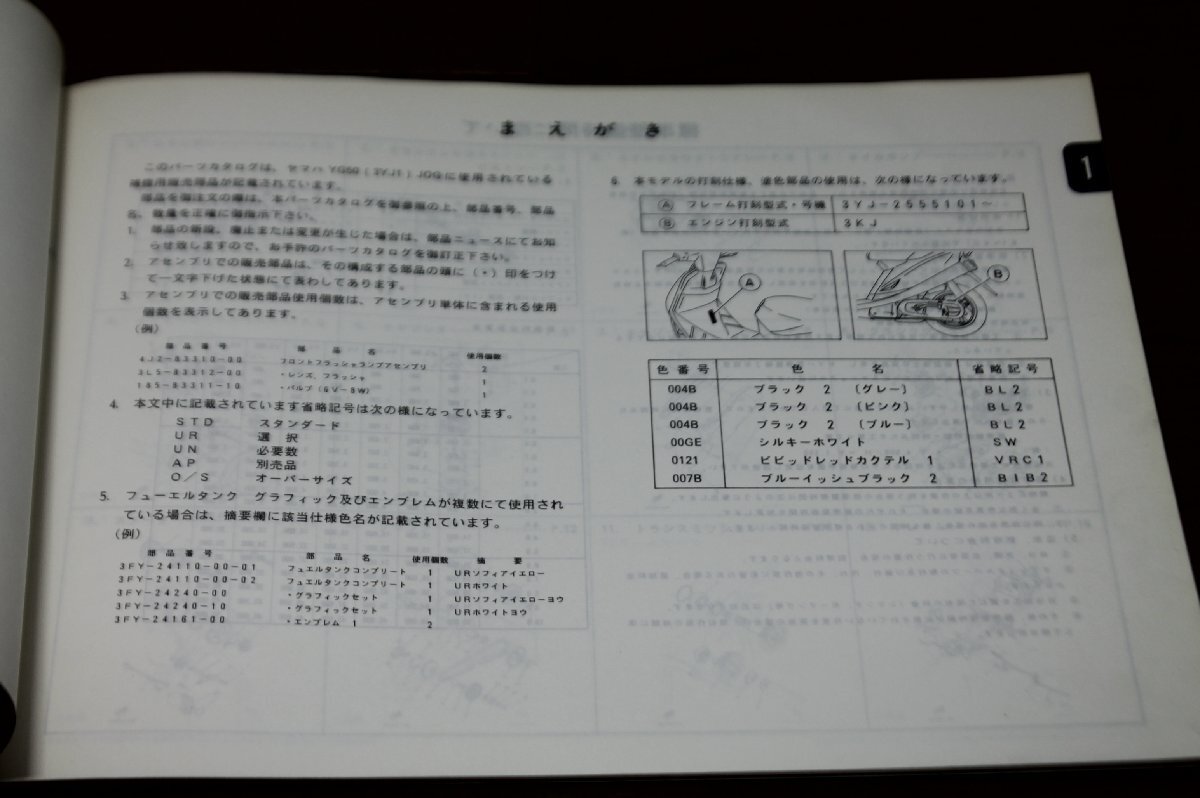 まえがき
1
このパーツカタログは、セマハ YG50 (3YJ1) JOGに使用されている
補修用販売部品が記載されています。
部品を御注文の際は、本パーツカタログを御参照の上、部品番号、部品
名、数量を正確に御指示下さい。
1. 部品の新設、廃止または変更が生じた場合は、部品ニュースにてお知
らせ致しますので、お手許のパーツカタログを御訂正下さい。
2. アセンブリでの販売部品は、その構成する部品の頭に(・)印をつけ
て一文字下げた状態にて表わしてあります。
3. アセンブリでの販売部品使用個数は、アセンブリ単体に含まれる使用
個数を表示してあります。
(例)
部品番号 部品名 使用個数
4J2-83310-00 フロントフラッシャランプアセンブリ 2
3L5-83312-00 ・レンズ、フラッシャ 1
185-83311-10 ・バルブ(6V-8W) 1
4. 本文中に記載されています省略記号は次の様になっています。
STD スタンダード
UR 選択
UN 必要数
AP 別売品
O/S オーバーサイズ
5. フューエルタンク グラフィック及びエンブレムが複数にて使用され
ている場合は、摘要欄に該当仕様色名が記載されています。
(例)
部品番号 部品名 使用個数 摘要
3FY-24110-00-01 フュエルタンクコンプリート 1 URソフィアイエロー
3FY-24110-00-02 フュエルタンクコンプリート 1 URホワイト
3FY-24240-00 ・グラフィックセット 1 URソフィアイエローヨウ
3FY-24240-10 ・グラフィックセット 1 URホワイトヨウ
3FY-24161-00 ・エンブレム 1 2
6. 本モデルの打刻仕様、塗色部品の使用は、次の様になっています。
Ⓐ フレーム打刻型式・号機 3YJ-2555101~
Ⓑ エンジン打刻型式 3KJ
A
B
色番号 色名 省略記号
004B ブラック 2 (グレー) BL2
004B ブラック 2 (ピンク) BL2
004B ブラック 2 (ブルー) BL2
00GE シルキーホワイト SW
0121 ビビッドレッドカクテル 1 VRC1
007B ブルーイッシュブラック 2 BIB2